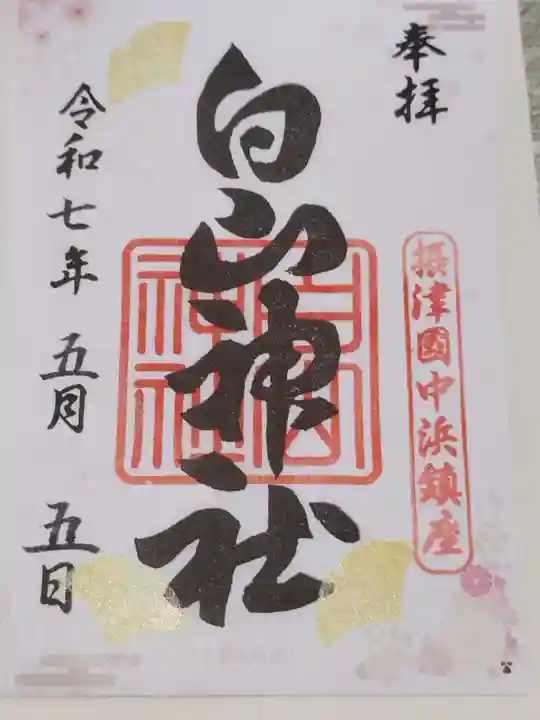 奉拝
摂津國中浜鎮座
白山神社
白山神社
令和七年 五月 五日